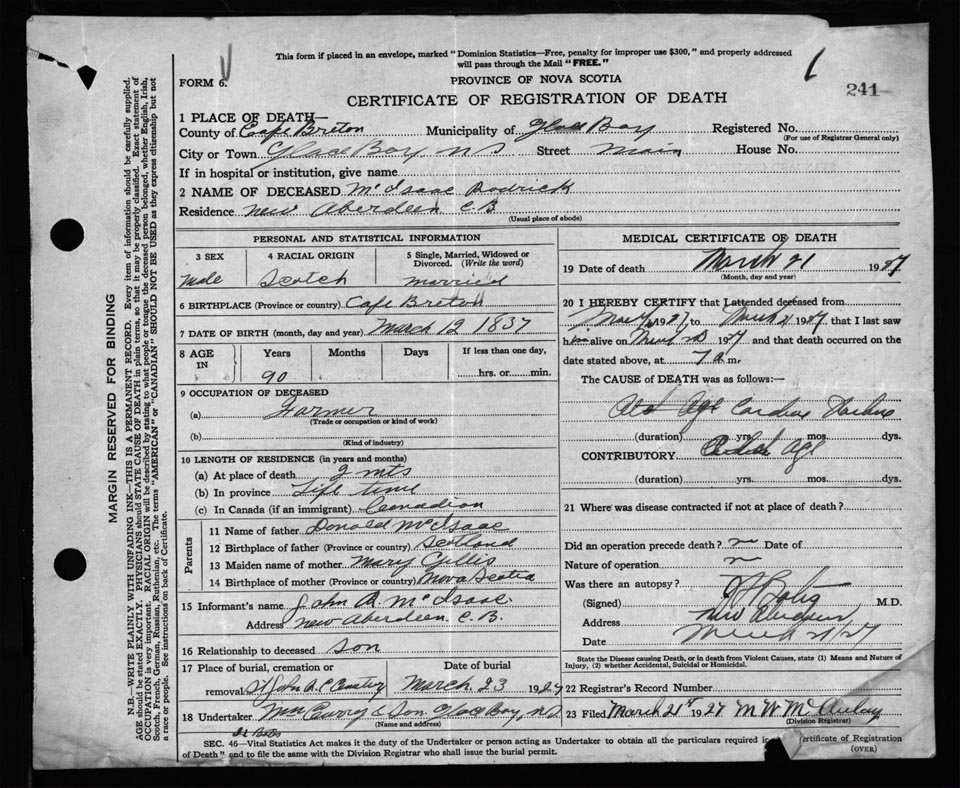 This form if placed in an envelope, marked "Dominion Statistics—Free, penalty for improper use $300," and properly addressed
will pass through the Mail "FREE."
FORM 6.
PROVINCE OF NOVA SCOTIA
241
CERTIFICATE OF REGISTRATION OF DEATH
1 PLACE OF DEATH—
County of Cape Breton Municipality of Glace Bay Registered No.
(For use of Registrar General only)
City or Town Glace Bay, N S Street Main House No.
If in hospital or institution, give name
2 NAME OF DECEASED McIsaac Rodrick
Residence New Aberdeen C.B.
(Usual place of abode)
PERSONAL AND STATISTICAL INFORMATION
3 SEX 4 RACIAL ORIGIN 5 Single, Married, Widowed or
Divorced. (Write the word)
Male Scotch married
6 BIRTHPLACE (Province or country) Cape Breton
7 DATE OF BIRTH (month, day and year) March 12 1837
8 AGE IN Years Months Days If less than one day,
90 hrs. or min.
9 OCCUPATION OF DECEASED
(a) Farmer
(Trade or occupation or kind of work)
(b)
(Kind of industry)
10 LENGTH OF RESIDENCE (in years and months)
(a) At place of death 2 mts
(b) In province Life time
(c) In Canada (if an immigrant) Canadian
Parents
11 Name of father Donald McIsaac
12 Birthplace of father (Province or country) Scotland
13 Maiden name of mother Mary Gillis
14 Birthplace of mother (Province or country) Nova Scotia
15 Informant's name John A. McIsaac
Address New Aberdeen, C. B.
16 Relationship to deceased Son
17 Place of burial, cremation or Date of burial
removal St John March 23 1927
18 Undertaker Curry & Son Glace Bay, N.S.
(Name and address)
MEDICAL CERTIFICATE OF DEATH
19 Date of death March 21 1927
(Month, day and year)
20 I HEREBY CERTIFY that I attended deceased from
1927 to March 21 1927 that I last saw
him alive on 1927 and that death occurred on the
date stated above, at 7 a m.
The CAUSE of DEATH was as follows:—
Old Age Cardiac
(duration) yrs. mos. dys.
CONTRIBUTORY Age
(duration) yrs. mos. dys.
21 Where was disease contracted if not at place of death?
Did an operation precede death? Date of
Nature of operation
Was there an autopsy?
(Signed) M.D.
Address New Aberdeen
Date March 21/27
State the Disease causing Death, or in death from Violent Causes, state (1) Means and Nature of
Injury, (2) whether Accidental, Suicidal or Homicidal.
22 Registrar's Record Number
23 Filed March 21st 1927 M W McAulay
(Division Registrar)
SEC. 46—Vital Statistics Act makes it the duty of the Undertaker or person acting as Undertaker to obtain all the particulars required in Certificate of Registration
of Death" and to file the same with the Division Registrar who shall issue the burial permit.
(OVER)
MARGIN RESERVED FOR BINDING
N.B.—WRITE PLAINLY, WITH UNFADING INK—THIS IS A PERMANENT RECORD. Every item of information should be carefully supplied.
AGE should be stated EXACTLY. PHYSICIANS should STATE CAUSE OF DEATH in plain terms, so that it may be properly classified. Exact statement of
OCCUPATION is very important. RACIAL ORIGIN will be described by stating to what people or tongue the deceased person belonged, whether English, Irish,
Scotch, French, German, Russian, Ruthenian, etc. The terms "AMERICAN" or "CANADIAN" SHOULD NOT BE USED as they express citizenship but not
a race or people. See instructions on back of Certificate.